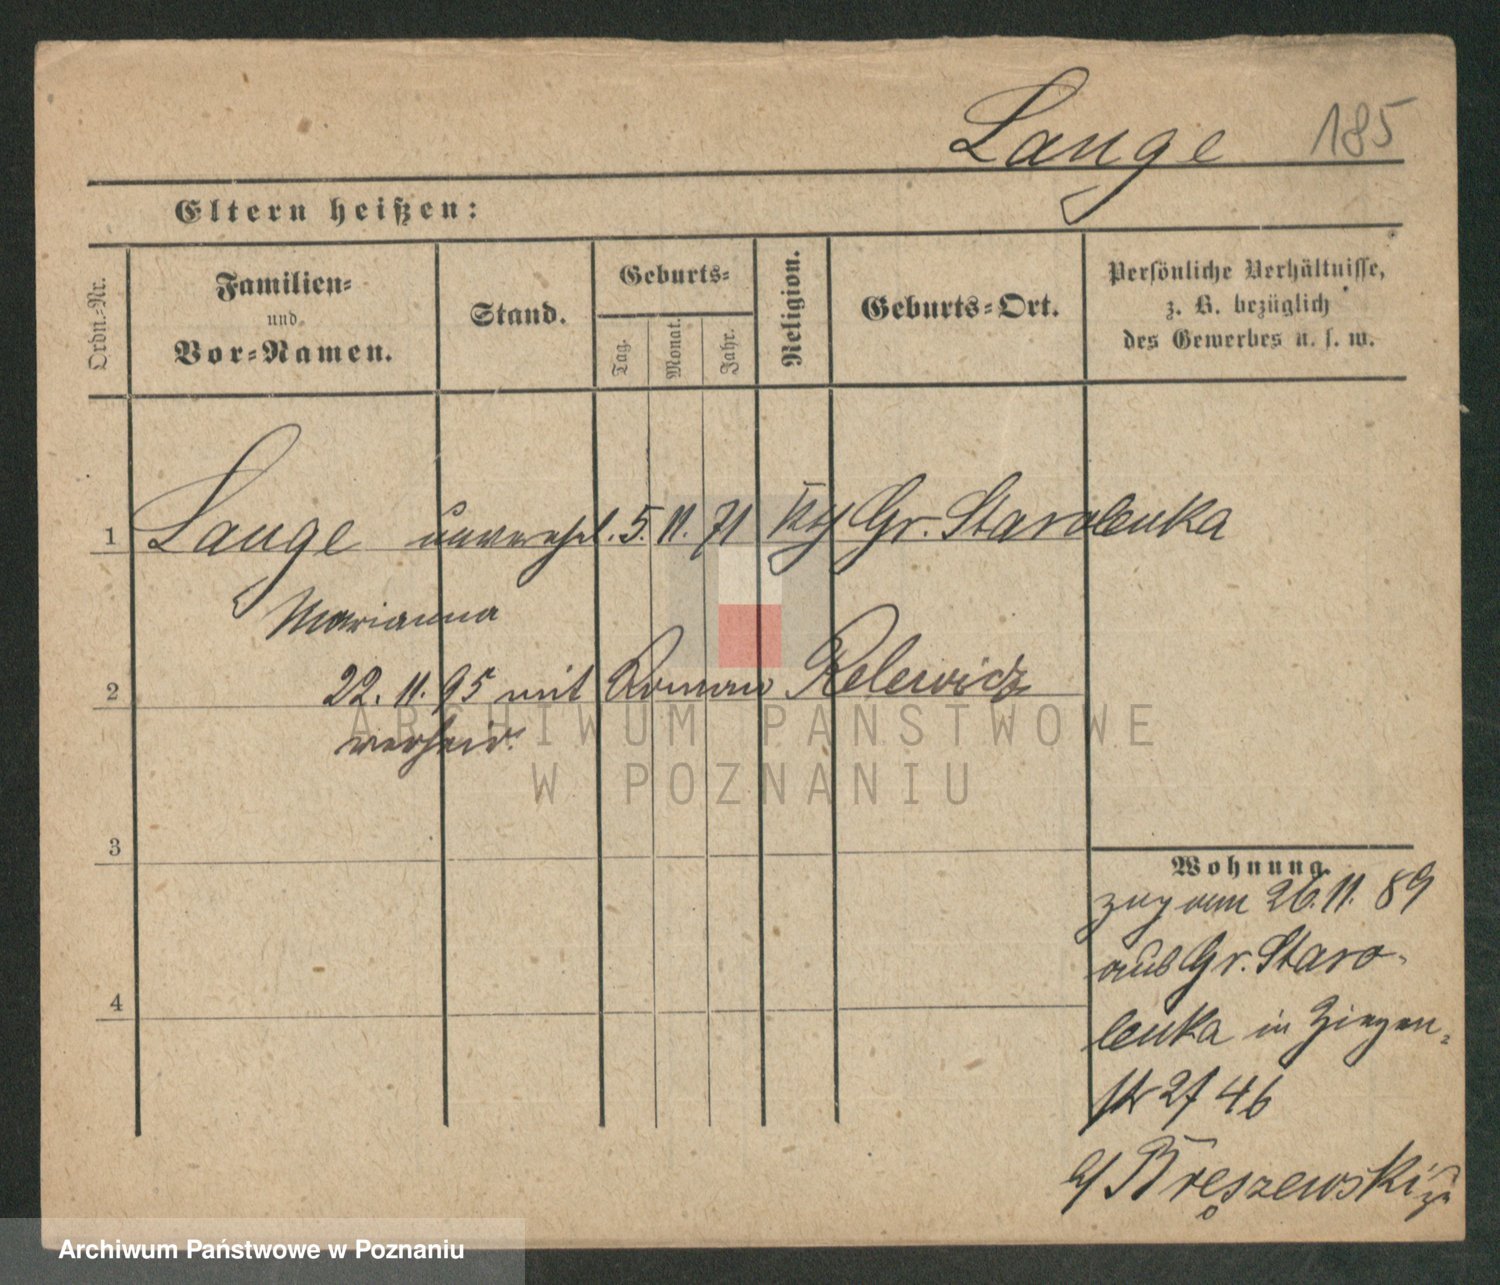 Lange 185
Eltern heißen:
Ordn.-Nr.
Familien-
und
Vor-Namen.
Stand.
Geburts-
Tag.
Monat.
Jahr.
Religion.
Geburts-Ort.
Persönliche Verhältnisse,
z. B. bezüglich
des Gewerbes u. s. w.
1 Lange unverehl. 5. 11. 71 Gr. Starolenka
Marianna
2 22. 11. 95 mit Roman Relewicz
verheir.
ARCHIWUM PAŃSTWOWE
W POZNANIU
3
Wohnung
zug vom 26. 11. 89
aus Gr. Staro-
lenka in Ziegen-
4
str 46
b/ Bręszewski
Archiwum Państwowe w Poznaniu